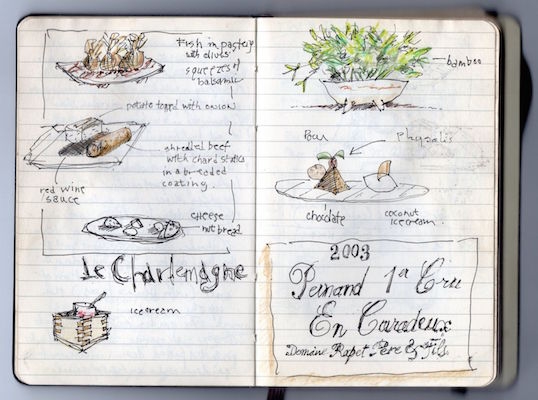 Fish in pastery
with olives
squeezes of
balsamic
potato topped with onion
shredled beef
with chard stalks
in a breaded
coating.
red wine
sauce
cheese
nut bread
Le Charlemagne
icecream
bamboo
Physalis
chocolate
coconut
icecream.
2003
Pernand 1er Cru
En Caradeux
Domaine Rapet Père & Fils.